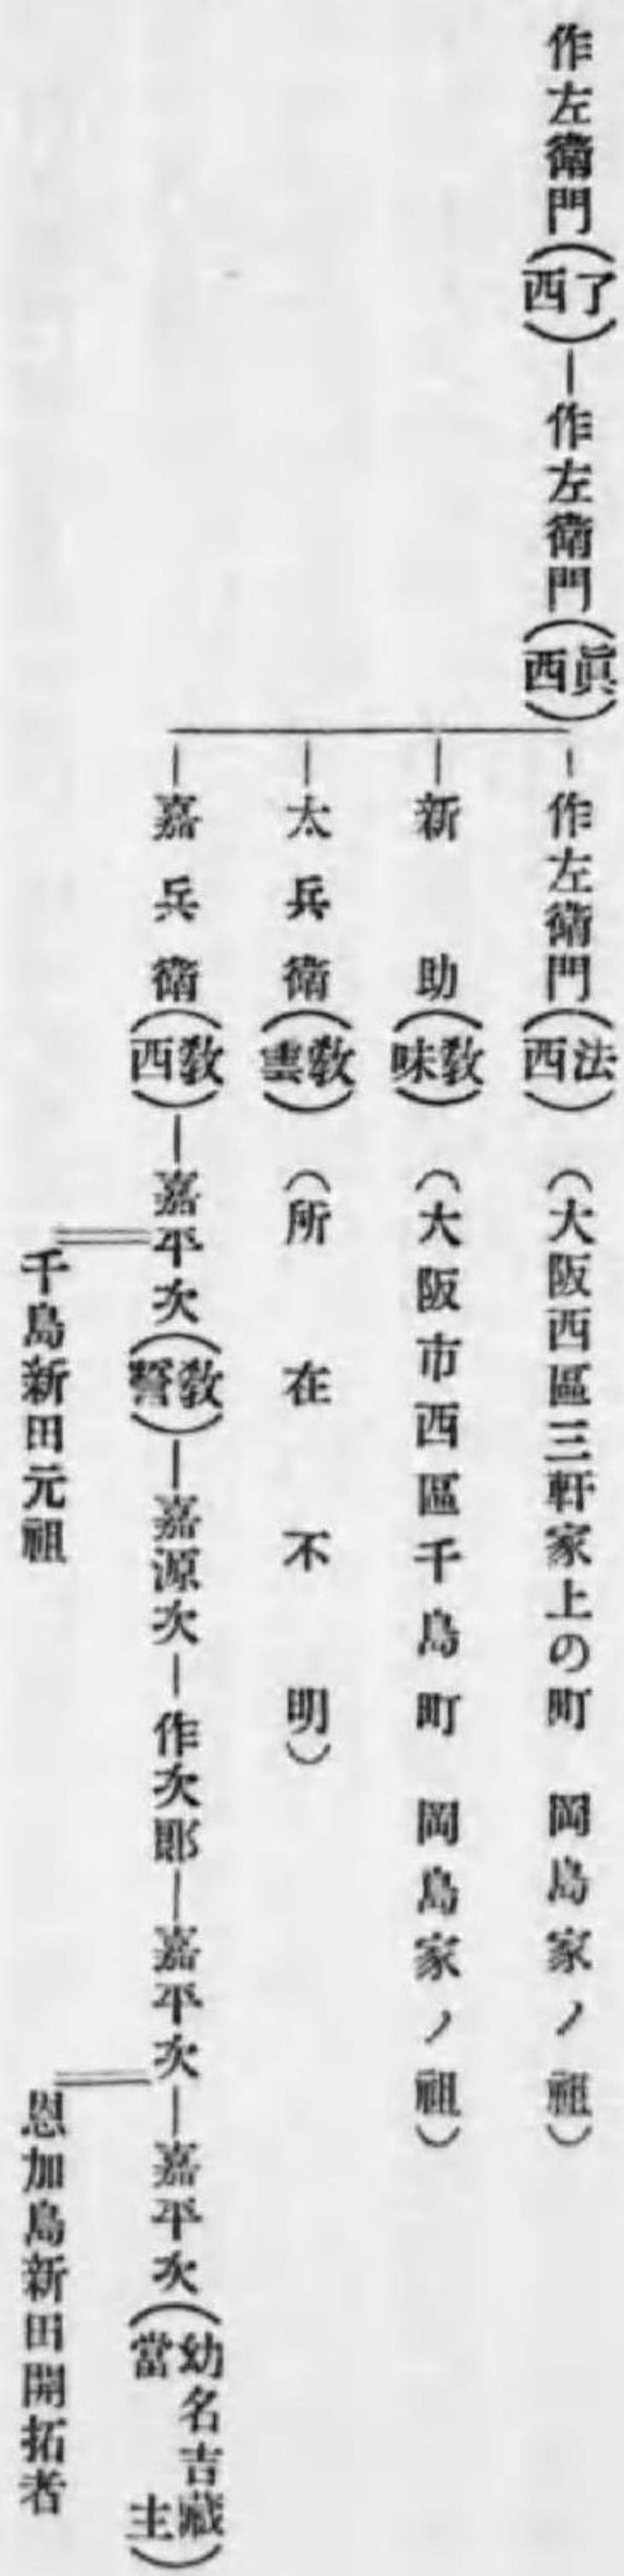 作左衞門(了西)―作左衞門(眞西)
―作左衞門(法西)(大阪西區三軒家上の町 岡島家ノ祖)
―新助(敎味)(大阪市西區千島町 岡島家ノ祖)
―太兵衞(敎雲)(所在不明)
―嘉兵衞(敎西)―嘉平次(敎誓)―嘉源次―作次郎―嘉平次―嘉平次(幼名吉藏 當主)
千島新田元祖
恩加島新田開拓者